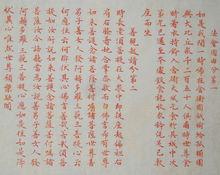 法會因由分第一
如是我聞一時佛在舍衛國祇樹給孤獨園
與大比丘眾千二百五十人俱爾時世尊食
時著衣持鉢入舍衛大城乞食於其城中次
第乞已還至本處飯食訖收衣鉢洗足已敷
座而坐
善現啟請分第二
時長老須菩提在大眾中即從座起偏袒右
肩右膝著地合掌恭敬而白佛言希有世尊
如來善護念諸菩薩善付囑諸菩薩世尊善
男子善女人發阿耨多羅三藐三菩提心云
何應住云何降伏其心佛言善哉善哉須菩
提如汝所說如來善護念諸菩薩善付囑諸
菩薩汝今諦聽當為汝說善男子善女人發
阿耨多羅三藐三菩提心應如是住如是降
伏其心唯然世尊願樂欲聞